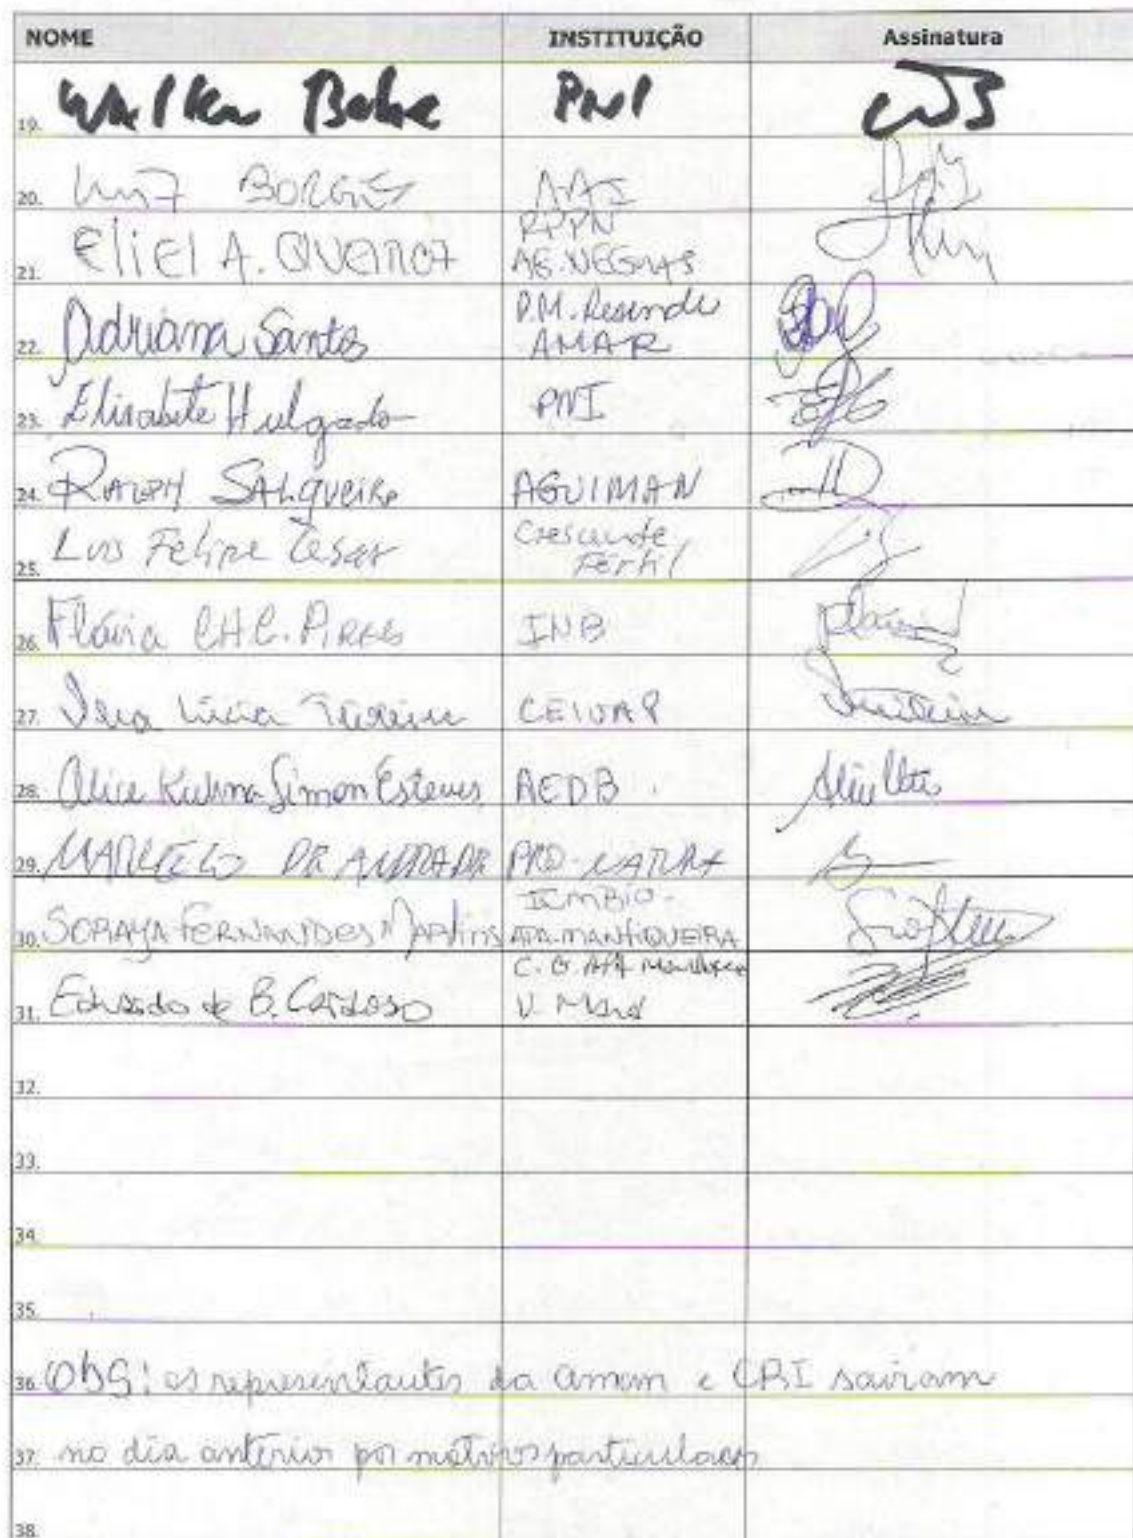 NOME INSTITUIÇÃO Assinatura
19. Walter PNI
20. Luiz BORGES AAI
21. Eliel A. QUEIROZ RPPN
AG. NEGRAS
22. Adriana Santos P.M. Resende
AMAR
23. Elisabete Hulgado PNI
24. RALPH SALgueiro AGUIMAN
25. Luis Felipe Cesar Crescente
Fértil
26. Flávia PIRES INB
27. Vera Lúcia Teixeira CEIVAP
28. Alice Kulina Simon Esteves AEDB
29. MARCELO DE ANDRADE PRO-NATURA
30. SORAYA FERNANDES Martins ICMBIO-
APA-MANTIQUEIRA
31. Eduardo de B. Cardoso C. G APA
V. Mauá
32.
33.
34.
35.
36. OBS: os representantes da amam e CRI sairam
37. no dia anterior por motivos particulares
38.